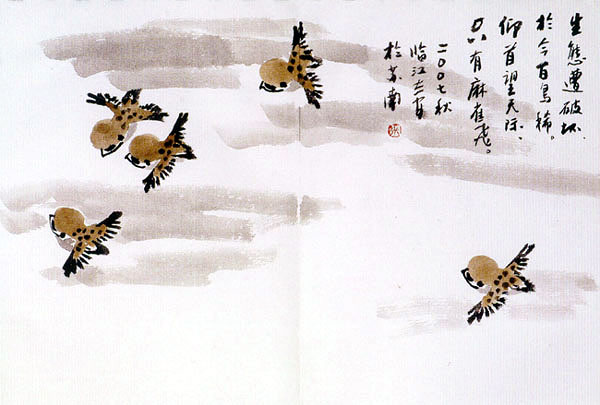 生態遭破坏.
於今百鳥稀。
仰首望天际、
只有麻雀飛。
二〇〇七秋
临江
於苏南